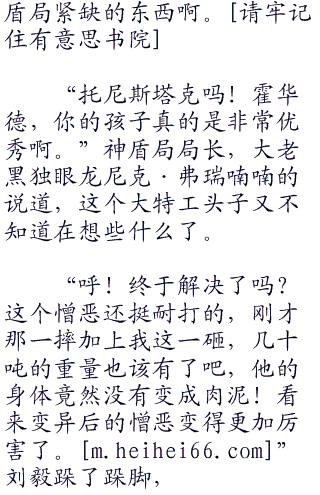 盾局紧缺的东西啊。[请牢记
住有意思书院]
“托尼斯塔克吗！霍华
德，你的孩子真的是非常优
秀啊。”神盾局局长，大老
黑独眼龙尼克·弗瑞喃喃的
说道，这个大特工头子又不
知道在想些什么了。
“呼！终于解决了吗？
这个憎恶还挺耐打的，刚才
那一摔加上我这一砸，几十
吨的重量也该有了吧，他的
身体竟然没有变成肉泥！看
来变异后的憎恶变得更加厉
害了。[m.heihei66.com]”
刘毅跺了跺脚，